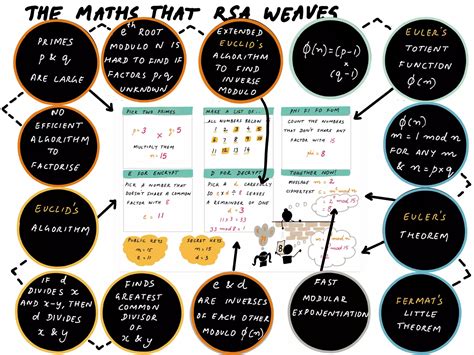 THE MATHS THAT RSA WEAVES
PRIMES
p & q
ARE LARGE
eth ROOT
MODULO N IS
HARD TO FIND IF
FACTORS p,q
UNKNOWN
EXTENDED
EUCLID'S
ALGORITHM
TO FIND
INVERSE
MODULO
φ(n)=(p-1)
×
(q-1)
EULER'S
TOTIENT
FUNCTION
φ(n)
NO
EFFICIENT
ALGORITHM
TO
FACTORISE
PICK TWO PRIMES
p=3 × q=5
MULTIPLY THEM
n=15
MAKE A LIST OF..
ALL NUMBERS BELOW
PHI FI FO FUM
COUNT THE NUMBERS
THAT DON'T SHARE ANY
FACTOR WITH 15
φ(n)
m = 1 mod n
FOR ANY m
& n = p×q
E FOR ENCRYPT
PICK A NUMBER THAT
DOESN'T SHARE A COMMON
FACTOR WITH
e = 11
D FOR DECRYPT
PICK A d CAREFULLY
LEAVES A
REMAINDER OF ONE
d = 3
TOGETHER NOW!
MESSAGE m = 2
EUCLID'S
ALGORITHM
PUBLIC KEYS
n=15
e=11
SECRET KEYS
n=15
d=3
EULER'S
THEOREM
IF d
DIVIDES x
AND x-y, THEN
d DIVIDES
x & y
FINDS
GREATEST
COMMON
DIVISOR
OF
x & y
e & d
ARE INVERSES
OF EACH OTHER
MODULO φ(n)
FAST
MODULAR
EXPONENTIATION
FERMAT'S
LITTLE
THEOREM